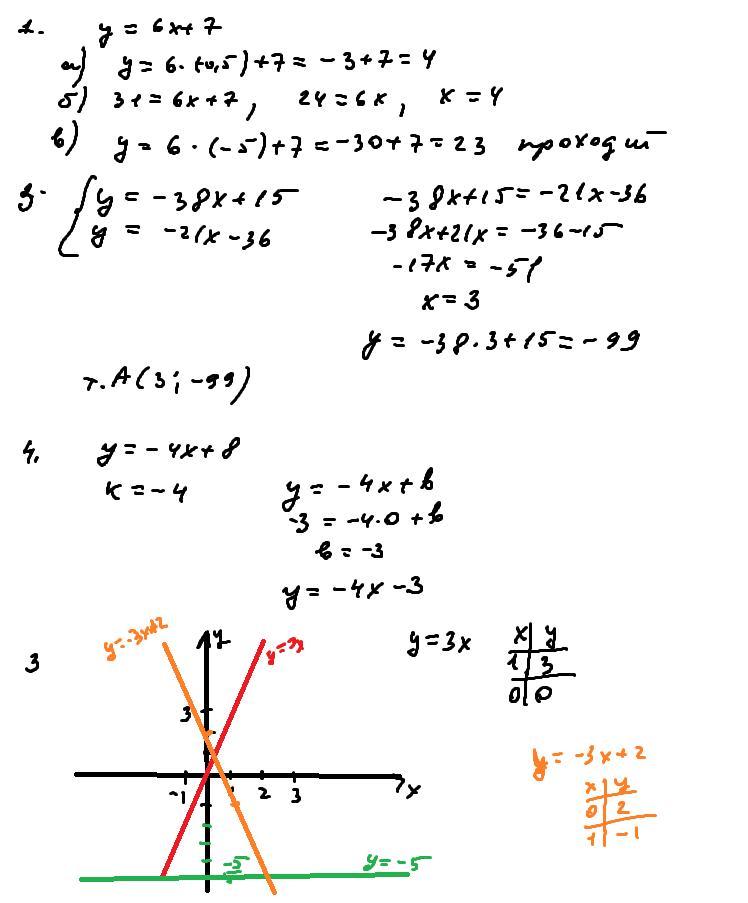 1. y = 6x+7
а) y = 6·(-0,5)+7 = -3+7 = 4
б) 31 = 6x+7, 24 = 6x, x = 4
в) y = 6·(-5)+7 = -30+7 = 23 проходит
3. { y = -38x+15
y = -21x-36
-38x+15 = -21x-36
-38x+21x = -36-15
-17x = -51
x = 3
y = -38·3+15 = -99
т. A(3; -99)
4. y = -4x+8
k = -4
y = -4x+b
-3 = -4·0+b
b = -3
y = -4x-3
3
y=-3x+2
y
y=3x
3
-1 1 2 3 x
-5
y=-5
y=3x
x y
1 3
0 0
y = -3x+2
x y
0 2
1 -1